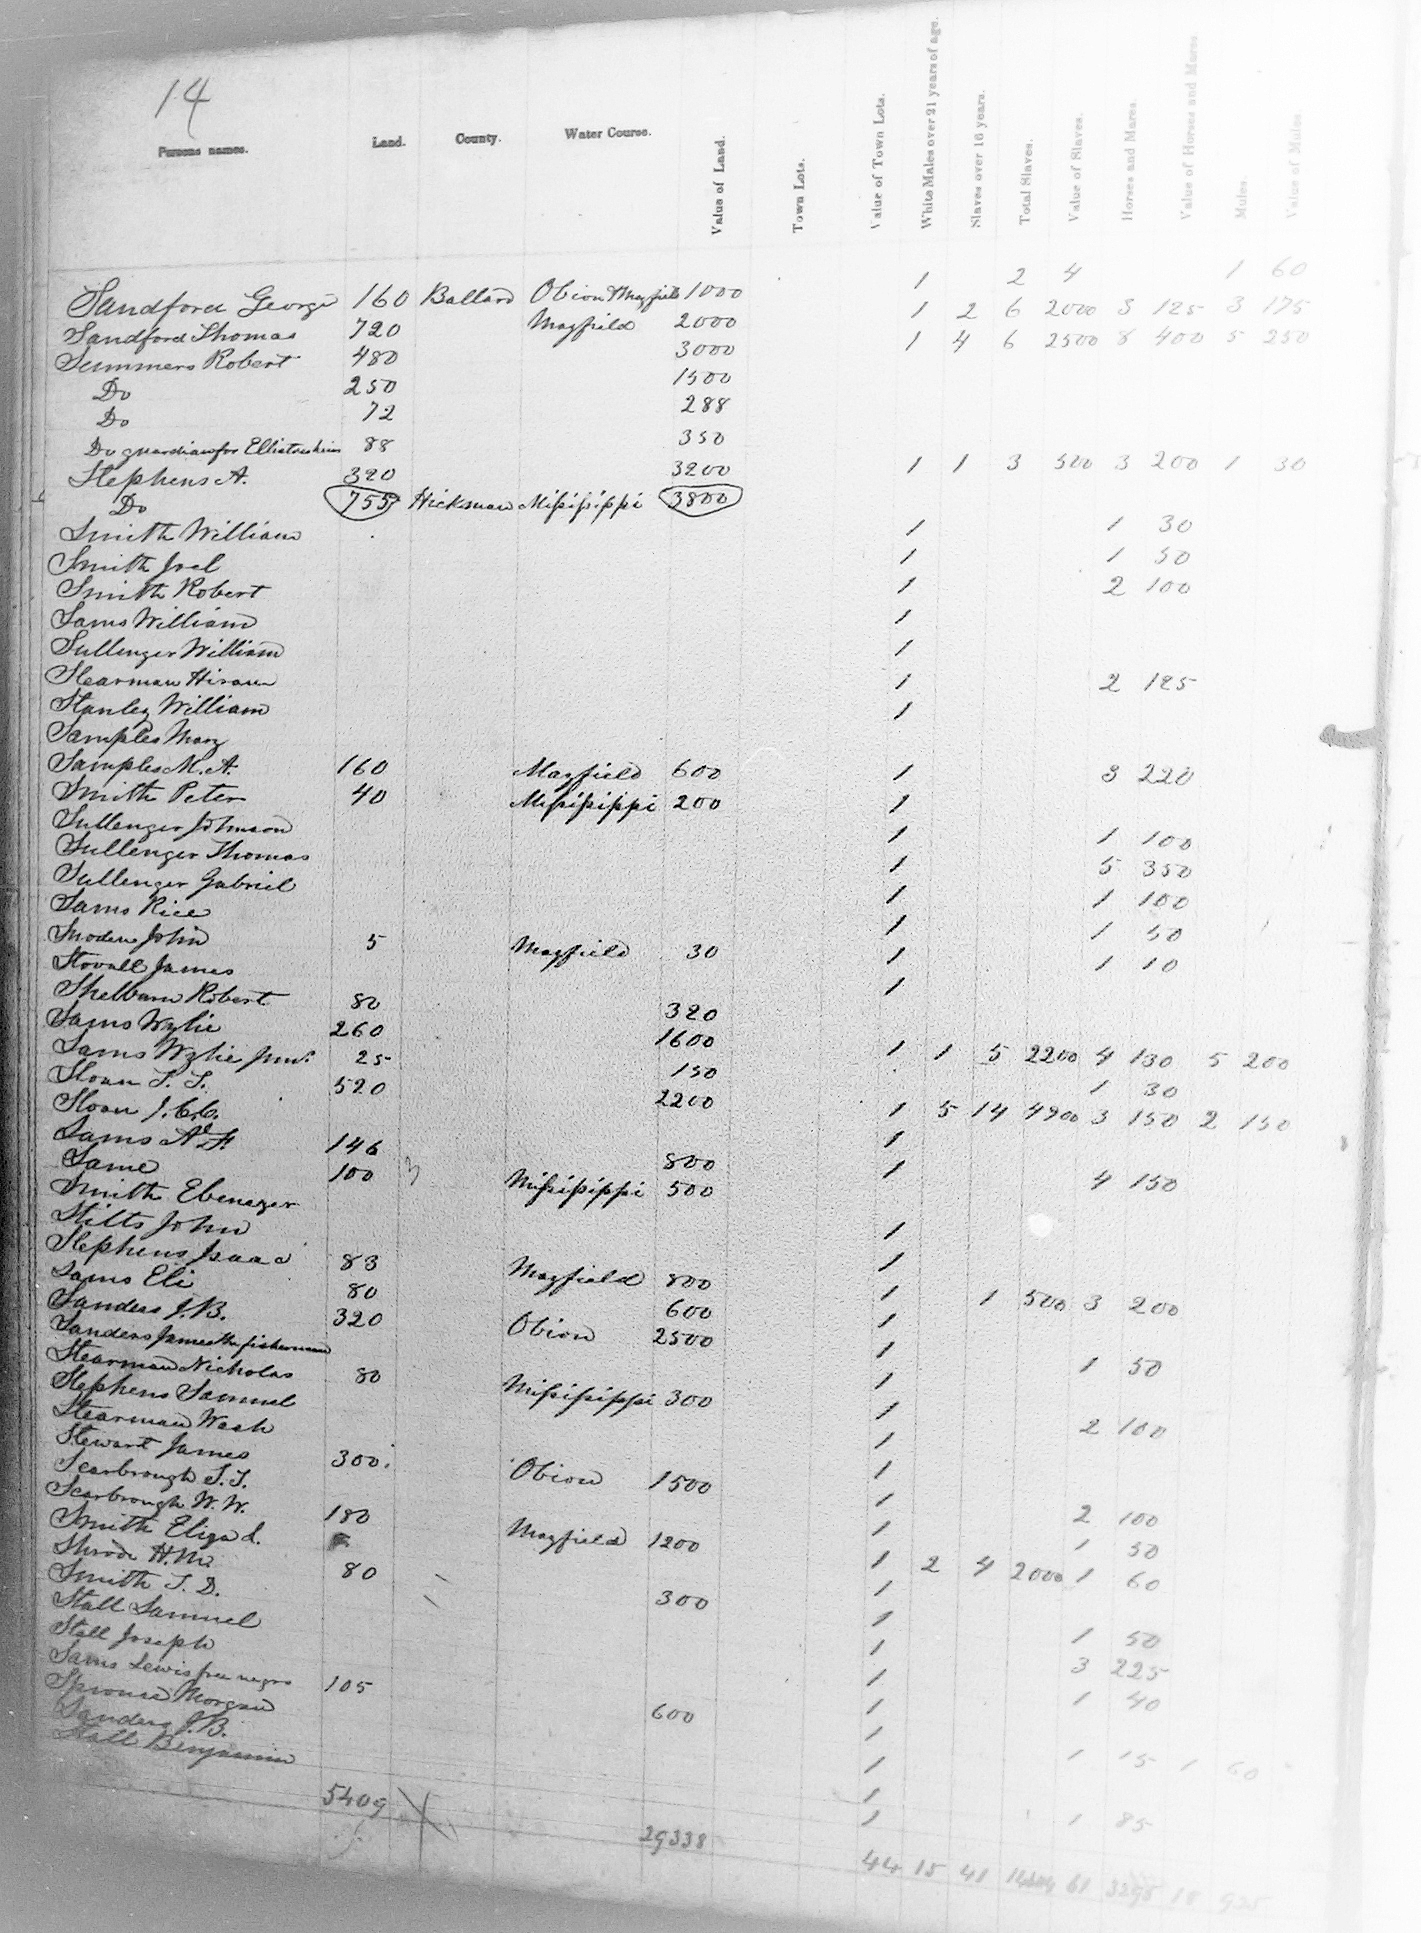 14
Persons names. Land. County. Water Course. Value of Land. Town Lots. Value of Town Lots. White Males over 21 years of age. Slaves over 16 years. Total Slaves. Value of Slaves. Horses and Mares. Value of Horses and Mares Mules. Value of Mules
Sandford George 160 Ballard Obion & Mayfield 1000 1 2 4 1 60
Sandford Thomas 720 Mayfield 2000 1 2 6 2000 3 125 3 175
Summers Robert 480 3000 1 4 6 2500 8 400 5 250
Do 250 1500
Do 72 288
Do guardian for heirs 88 350
Stephens A. 320 3200 1 1 3 500 3 200 1 30
Do 755 Hickman Missisippi 3800
Smith William 1 1 30
Smith Joel 1 1 50
Smith Robert 1 2 100
Sams William 1
Sullenger William 1
Stearman Hiram 1 2 125
Stanley William 1
Samples Mary
Samples M. A. 160 Mayfield 600 1 3 220
Smith Peter 40 Missisippi 200 1
Sullenger Johnson 1 1 100
Sullenger Thomas 1 5 350
Sullenger Gabriel 1 1 100
Sams Rice 1 1 50
John 5 Mayfield 30 1 1 10
Stovall James 1
Shelburn Robert 80 320
Sams Wylie 260 1600 1 1 5 2200 4 130 5 200
Sams Wylie Junr. 25 150 1 30
Sloan T. T. 520 2200 1 5 14 4900 3 150 2 150
Sloan J. C. C. 1
Sams 146 800 1 4 150
Same 100 Missisippi 500
Smith Ebenezer 1
Stilts John 1
Stephens Isaac 83 Mayfield 800 1 1 500 3 200
Sams Eli 80 600 1
Sanders J. B. 320 Obion 2500 1 1 50
Sanders James the fisherman 1
Stearman Nicholas 80 Missisippi 300 1 2 100
Stephens Samuel 1
Stearman Wash 1
Stewart James 300 Obion 1500 1 2 100
Scarbrough S. T. 1 1 50
Scarbrough W. W. 180 Mayfield 1200 1 2 4 2000 1 60
Smith Eliza 1
H. M. 80 300 1 1 50
Smith T. D. 1 3 225
Stall Samuel 1 1 40
Stall Joseph 1
Sams Lewis free negro 105 600 1
Sprouse Morgan 1 1 15 1 60
Sanders J. B. 1
Stall Benjamin 1 1 85
5409 29338 44 15 41 61 18 925